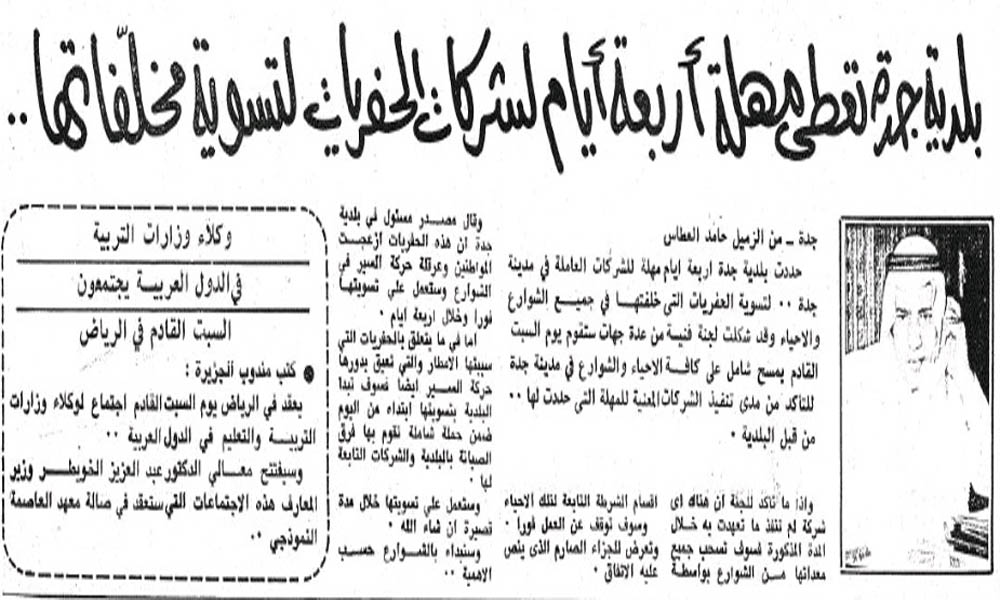 بلدية جدة تعطى مهلة أربعة أيام لشركات الحفريات لتسوية مخلفاتها ..
جدة ــ من الزميل حامد العطاس
حددت بلدية جدة اربعة ايام مهلة للشركات العاملة في مدينة
جدة ٠٠ لتسوية الحفريات التى خلفتها في جميع الشوارع
والاحياء وقد شكلت لجنة فنية من عدة جهات ستقوم يوم السبت
القادم بمسح شامل على كافة الاحياء والشوارع في مدينة جدة
للتأكد من مدى تنفيذ الشركات المعنية للمهلة التى حددت لها ٠٠
من قبل البلدية ٠
واذا ما تأكد للجنة ان هناك اى
شركة لم تنفذ ما تعهدت به خلال
المدة المذكورة فسوف تسحب جميع
معداتها من الشوارع بواسطة
اقسام الشرطة التابعة لتلك الاحياء
وسوف توقف عن العمل فورا ٠
وتعرض للجزاء الصارم الذى ينص
عليه الاتفاق ٠
وقال مصدر مسئول في بلدية
جدة ان هذه الحفريات ازعجت
المواطنين وعرقلة حركة السير في
الشوارع وستعمل على تسويتها
فورا وخلال اربعة ايام ٠
اما في ما يتعلق بالحفريات التي
سببتها الامطار والتي تعيق بدورها
حركة السير ايضا فسوف تبدا
البلدية بتسويتها ابتداء من اليوم
ضمن حملة شاملة تقوم بها فرق
الصيانة بالبلدية والشركات التابعة
لها ٠
وستعمل على تسويتها خلال مدة
قصيرة ان شاء الله ٠
وسنبداء بالشوارع حسب
الاهمية ٠٠
وكلاء وزارات التربية
في الدول العربية يجتمعون
السبت القادم في الرياض
● كتب مندوب الجزيرة :
يعقد في الرياض يوم السبت القادم اجتماع لوكلاء وزارات
التربية والتعليم في الدول العربية ٠٠
وسيفتتح معالي الدكتور عبد العزيز الخويطر وزير
المعارف هذه الاجتماعات التي ستعقد في صالة معهد العاصمة
النموذجي ٠٠